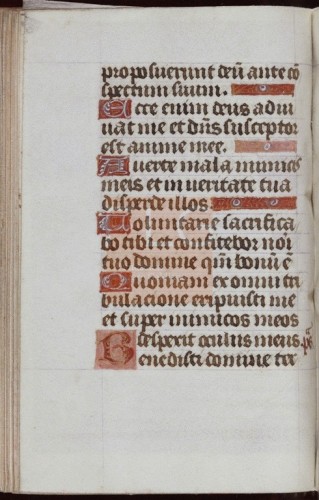 proposuerunt deū ante cō
spectum suum.
Ecce enim deus adiu
uat me et dn̄s susceptor
est anime mee.
Auerte mala inimicis
meis et in ueritate tua
disperde illos
Uoluntarie sacrifica
bo tibi et confitebor noī
tuo domine qm̄ bonū ē
Quoniam ex omni tri
bulacione eripuisti me
et super inimicos meos
despexit oculus meus
Benedixisti domine ter